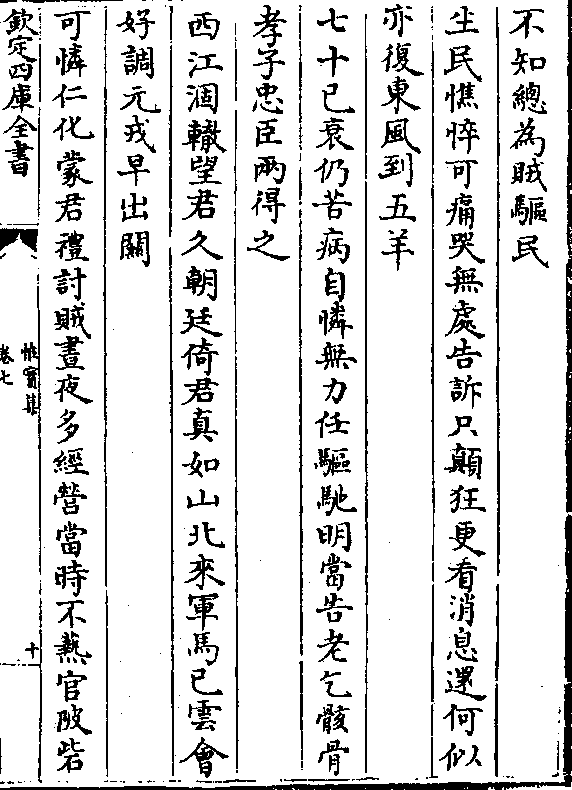 不知總為賊驅民
生民憔悴可痛哭無處告訴只顛狂更看消息還何似
亦復東風到五羊
七十已衰仍苦病自憐無力任驅馳明當告老乞骸骨
孝子忠臣兩得之
西江涸轍望君久朝廷倚君真如山北來軍馬已雲會
好調元戎早出關
可憐仁化蒙君禮討賊晝夜多經營當時不爇官陂砦
欽定四庫全書
惟實集
卷七
十